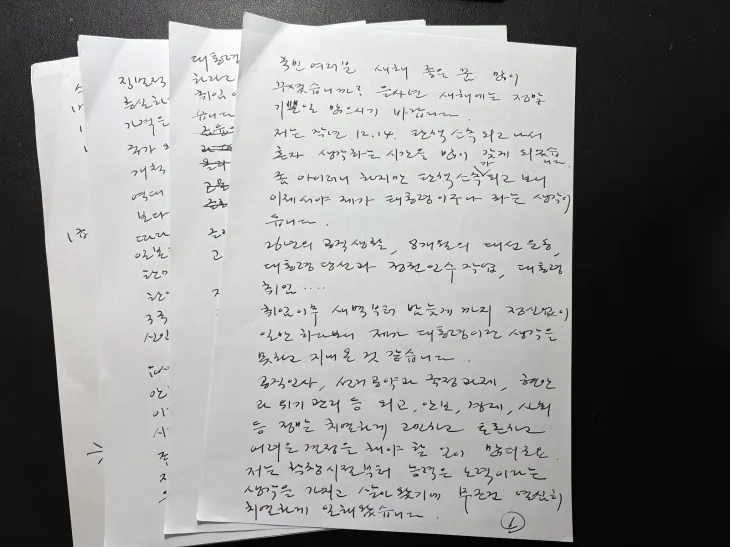 국민 여러분 새해 좋은 꿈 많이
꾸셨습니까? 을사년 새해에는 정말
기쁜일 많으시기 바랍니다.
저는 작년 12.14. 탄핵 소추되고 나서
혼자 생각하는 시간을 많이 갖게 되었습니다.
좀 아이러니 하지만 탄핵 소추가 되고 보니
이제서야 제가 대통령이구나 하는 생각이
듭니다.
26년의 공직생활, 8개월의 대선 운동,
대통령 당선과 정권 인수 작업, 대통령
취임....
취임이후 새벽부터 밤늦게 까지 정신없이
일만 하다보니 제가 대통령이란 생각을
못하고 지내온 것 같습니다.
공직인사, 선거공약과 국정과제, 현안
과 위기 관리 등 외교, 안보, 경제, 사회
등 정말 치열하게 고민하고 토론하고
어려운 결정을 해야 할 일이 많더군요.
저는 학창시절부터 능력은 노력이라는
생각을 가지고 살아왔기에 무조건 열심히
치열하게 일해왔습니다.
①
대통령
하라고
취임 이
습니다
고
가격은
국가
개척
역대
보다
따라
일본